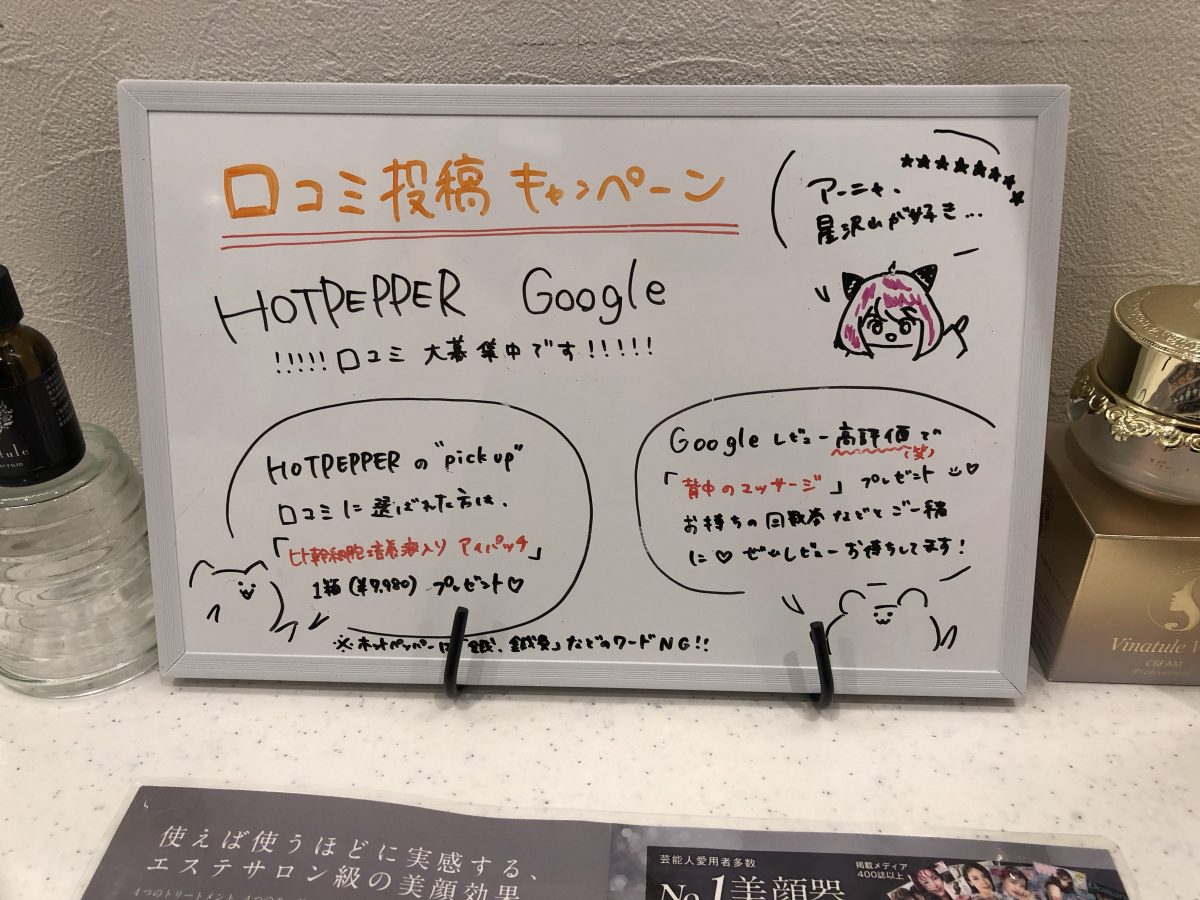 口コミ投稿 キャンペーン
★★★★★★★★
アーニャ、
星沢山が好き…
HOTPEPPER Google
!!!!!口コミ 大募集中です!!!!!
HOTPEPPERの"pick up"
口コミに選ばれた方は、
「ヒト幹細胞培養液入り アイパッチ」
1箱(¥7,980) プレゼント♡
Google レビュー高評価で
(笑)
「背中のマッサージ」プレゼント
お持ちの回数券などとご一緒
に♡ ぜひレビューお待ちしてます!
※ホットペッパーは「鍼、鍼灸」などのワードNG!!
Vinatule
CREAM
使えば使うほどに実感する、
エステサロン級の美顔効果
芸能人愛用者多数
No.1美顔器
掲載メディア
400誌以上